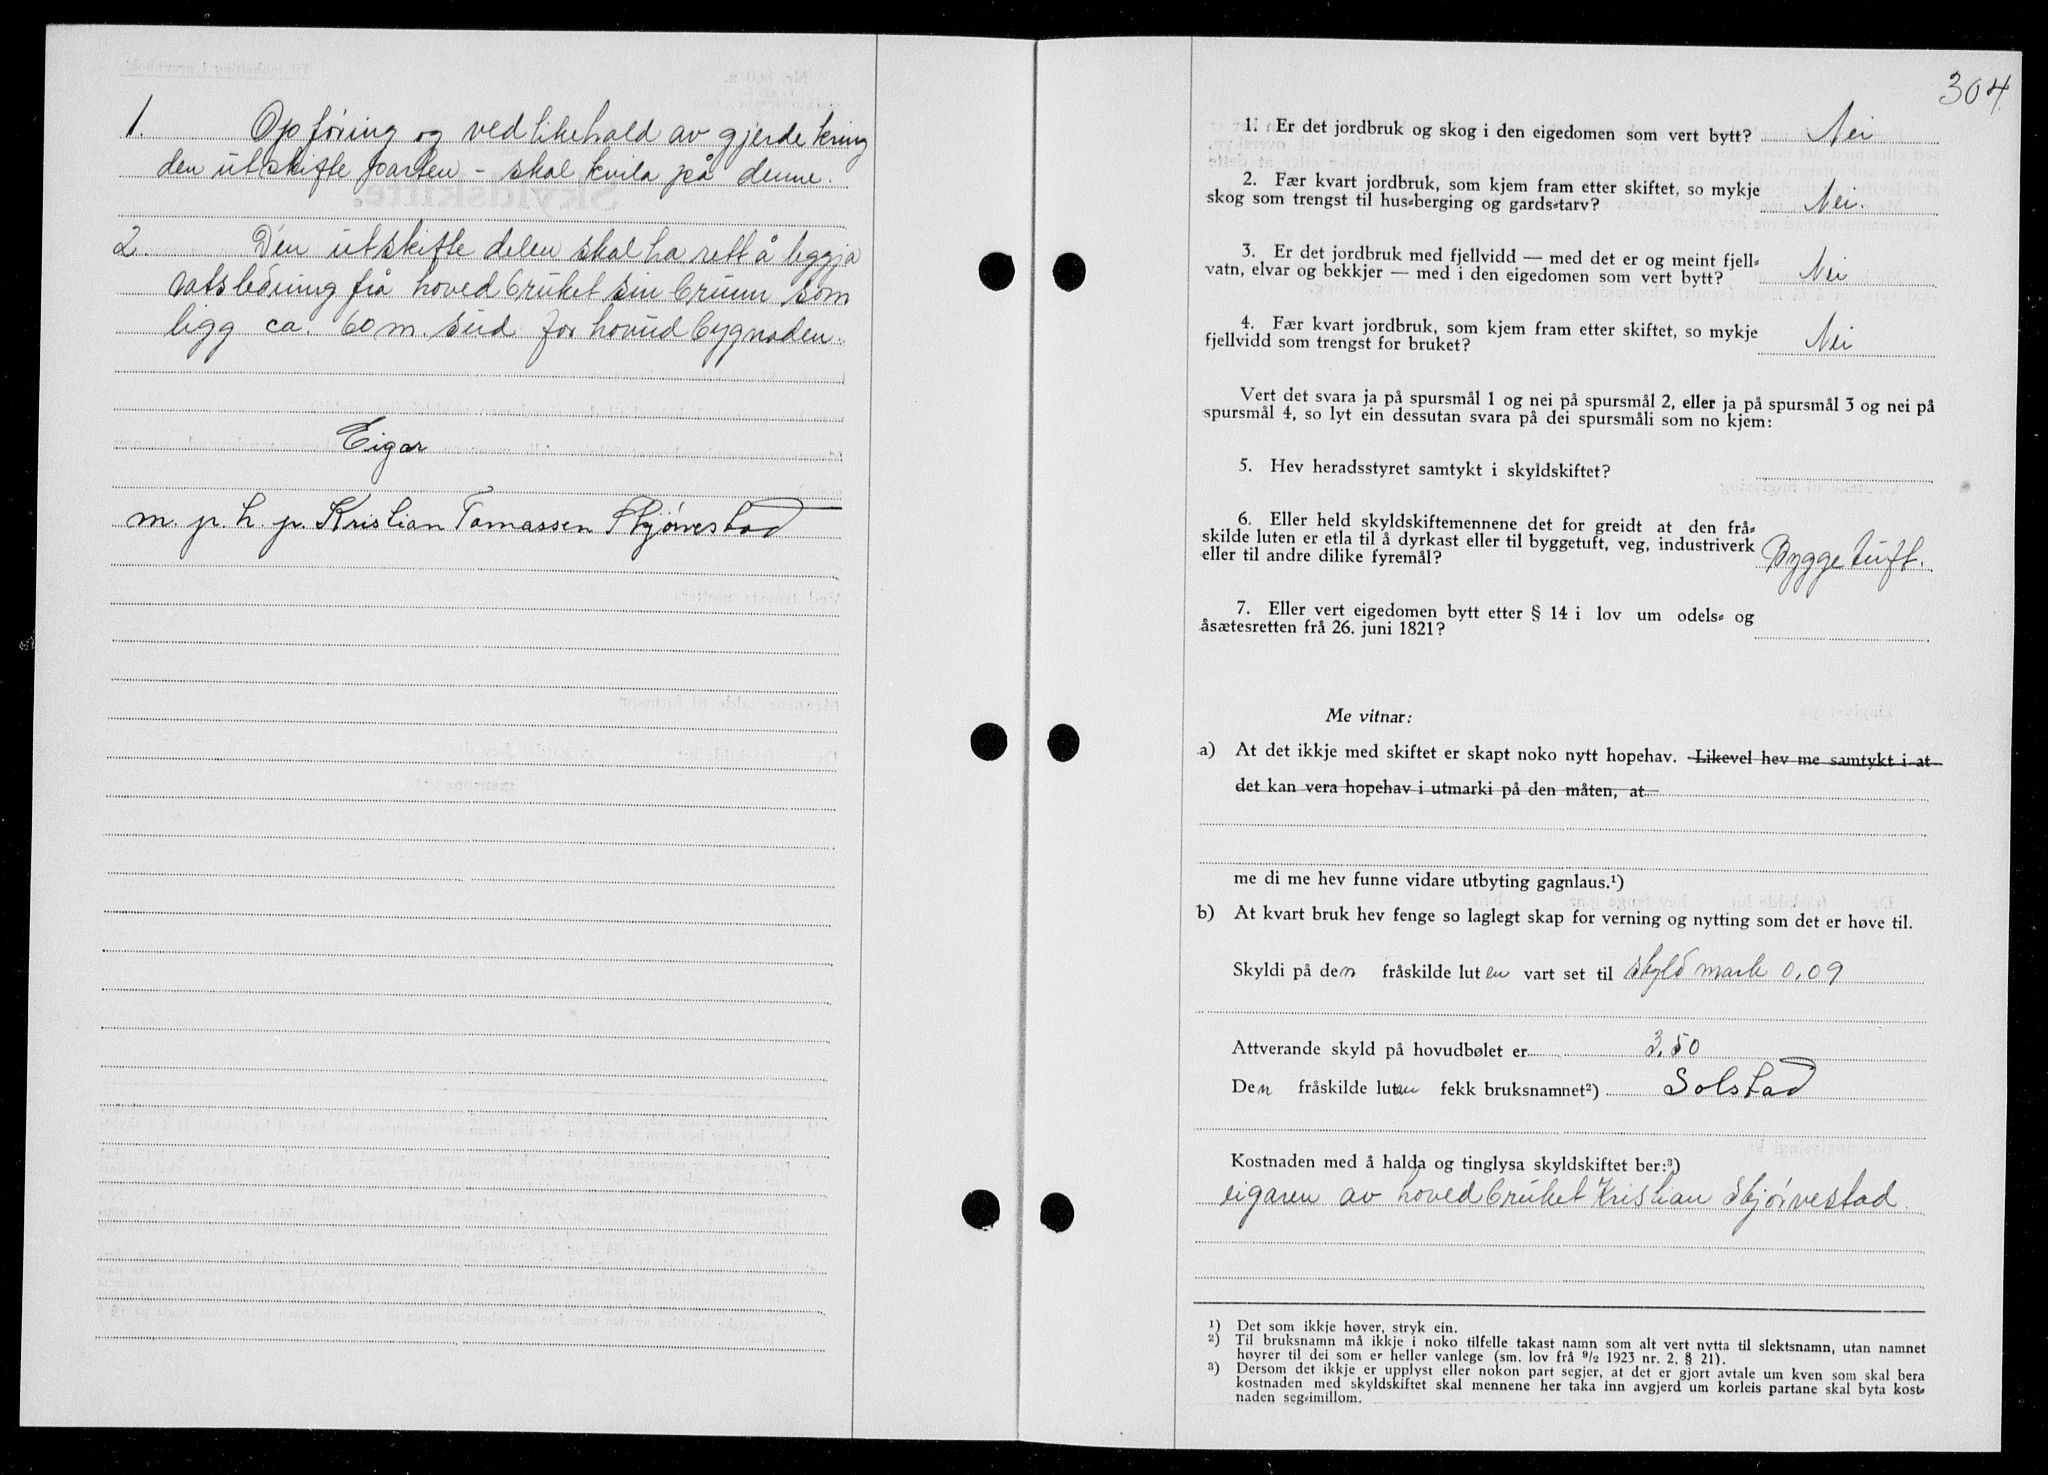 1. Opføring og vedlikehald av gjerde kring
den utskifte parten - skal kvila på denne.
2. Den utskifte delen skal ha rett å leggja
vatsledning frå hovedbruket sin brunn som
ligg ca. 60 m. sud for hovudbygnaden.
Eigar
m. p. h. p. Kristian Tomassen Skjørvestad
304
1. Er det jordbruk og skog i den eigedomen som vert bytt? Nei
2. Fær kvart jordbruk, som kjem fram etter skiftet, so mykje
skog som trengst til hus-berging og gards-tarv? Nei.
3. Er det jordbruk med fjellvidd — med det er og meint fjell-
vatn, elvar og bekkjer — med i den eigedomen som vert bytt? Nei
4. Fær kvart jordbruk, som kjem fram etter skiftet, so mykje
fjellvidd som trengst for bruket? Nei
Vert det svara ja på spursmål 1 og nei på spursmål 2, eller ja på spursmål 3 og nei på
spursmål 4, so lyt ein dessutan svara på dei spursmåli som no kjem:
5. Hev heradsstyret samtykt i skyldskiftet?
6. Eller held skyldskiftemennene det for greidt at den frå-
skilde luten er etla til å dyrkast eller til byggetuft, veg, industriverk
eller til andre dilike fyremål? Byggetuft.
7. Eller vert eigedomen bytt etter § 14 i lov um odels- og
åsætesretten frå 26. juni 1821?
Me vitnar:
a) At det ikkje med skiftet er skapt noko nytt hopehav. Likevel hev me samtykt i at
det kan vera hopehav i utmarki på den måten, at
me di me hev funne vidare utbyting gagnlaus.¹)
b) At kvart bruk hev fenge so laglegt skap for verning og nytting som det er høve til.
Skyldi på den fråskilde luten vart set til skyldmark 0,09
Attverande skyld på hovudbølet er 3,50
Den fråskilde luten fekk bruksnamnet²) Solstad
Kostnaden med å halda og tinglysa skyldskiftet ber:³)
eigaren av hovedbruket Kristian Skjørvestad.
¹) Det som ikkje høver, stryk ein.
²) Til bruksnamn må ikkje i noko tilfelle takast namn som alt vert nytta til slektsnamn, utan namnet
høyrer til dei som er heller vanlege (sm. lov frå 9/2 1923 nr. 2, § 21).
³) Dersom det ikkje er upplyst eller nokon part segjer, at det er gjort avtale um kven som skal bera
kostnaden med skyldskiftet skal mennene her taka inn avgjerd um korleis partane skal byta kost-
naden seg-imillom.